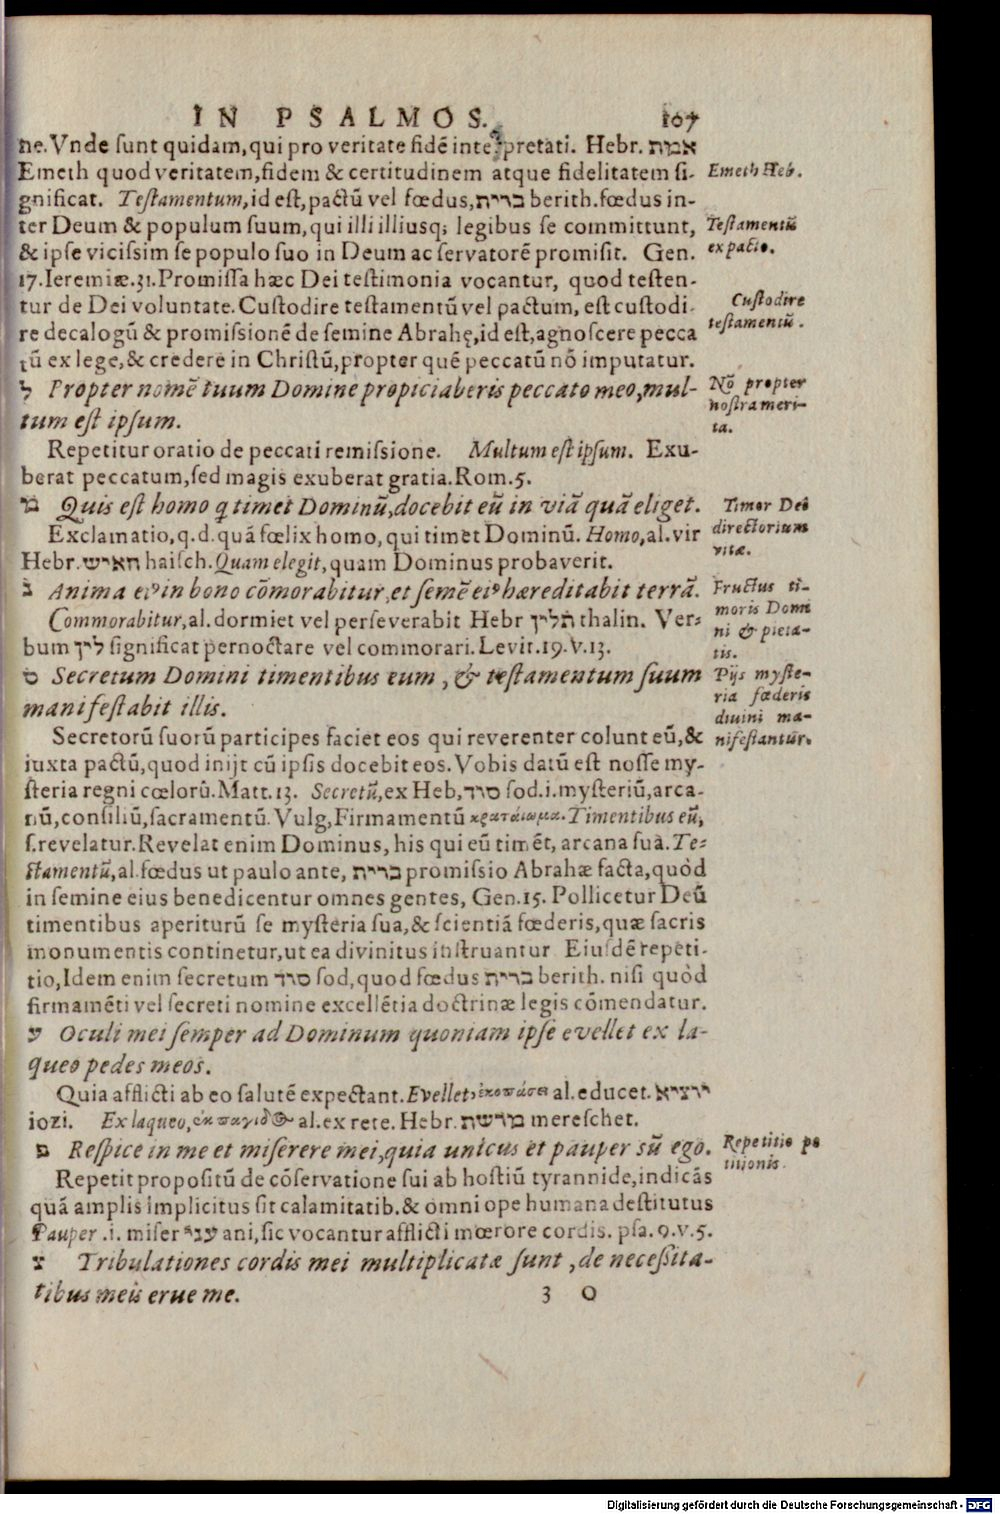 IN PSALMOS. 107
ne. Vnde sunt quidam, qui pro veritate fidē interpretati. Hebr. אמת
Emeth quod veritatem, fidem & certitudinem atque fidelitatem si-
Emeth Heb.
gnificat. Testamentum, id est, pactū vel fœdus, ברית berith. fœdus in-
ter Deum & populum suum, qui illi illiusq; legibus se committunt,
Testamentū
& ipse vicissim se populo suo in Deum ac servatorē promisit. Gen.
ex pacto.
17. Ieremiæ. 31. Promissa hæc Dei testimonia vocantur, quod testen-
tur de Dei voluntate. Custodire testamentū vel pactum, est custodi-
Custodire
re decalogū & promissionē de semine Abrahę, id est, agnoscere pecca
testamentū.
tū ex lege, & credere in Christū, propter quē peccatū nō imputatur.
ל Propter nomē tuum Domine propiciaberis peccato meo, mul-
Nō propter
nostra meri-
tum est ipsum.
ta.
Repetitur oratio de peccati remissione. Multum est ipsum. Exu-
berat peccatum, sed magis exuberat gratia. Rom. 5.
מ Quis est homo q timet Dominū, docebit eū in viā quā eliget.
Timor Dei
Exclamatio, q. d. quā fœlix homo, qui timet Dominū. Homo, al. vir
directorium
Hebr. האיש haisch. Quam elegit, quam Dominus probaverit.
vitæ.
נ Anima eiꝰ in bono cōmorabitur, et semē eiꝰ hæreditabit terrā.
Fructus ti-
Commorabitur, al. dormiet vel perseverabit Hebr תלין thalin. Ver-
moris Domi
ni & pieta-
bum לין significat pernoctare vel commorari. Levit. 19. v. 13.
tis.
ס Secretum Domini timentibus eum, & testamentum suum
Pijs myste-
ria fœderis
manifestabit illis.
diuini ma-
Secretorū suorū participes faciet eos qui reverenter colunt eū, &
nifestantur.
iuxta pactū, quod inijt cū ipsis docebit eos. Vobis datū est nosse my-
steria regni cœlorū. Matt. 13. Secretū, ex Heb, סוד sod. i. mysteriū, arca-
nū, consiliū, sacramentū. Vulg, Firmamentū κραταίωμα. Timentibus eū,
s. revelatur. Revelat enim Dominus, his qui eū timēt, arcana suā. Te-
stamentū, al. fœdus ut paulo ante, ברית promissio Abrahæ facta, quòd
in semine eius benedicentur omnes gentes, Gen. 15. Pollicetur Deū
timentibus aperiturū se mysteria sua, & scientiā fœderis, quæ sacris
monumentis continetur, ut ea divinitus instruantur Eiusdē repeti-
tio, Idem enim secretum סוד sod, quod fœdus ברית berith. nisi quòd
firmamēti vel secreti nomine excellētia doctrinæ legis cōmendatur.
ע Oculi mei semper ad Dominum quoniam ipse evellet ex la-
queo pedes meos.
Quia afflicti ab eo salutē expectant. Evellet, ἐκσπάσει al. educet. יוציא
iozi. Ex laqueo, ἐκ παγίδος al. ex rete. Hebr. מרשת mereschet.
פ Respice in me et miserere mei, quia unicus et pauper sū ego.
Repetitio pe
titionis.
Repetit propositū de cōservatione sui ab hostiū tyrannide, indicās
quā amplis implicitus sit calamitatib. & omni ope humana destitutus
Pauper. i. miser עני ani, sic vocantur afflicti mœrore cordis. psa. 9. v. 5.
צ Tribulationes cordis mei multiplicatæ sunt, de necessita-
tibus meis erue me.
3 O
Digitalisierung gefördert durch die Deutsche Forschungsgemeinschaft - DFG